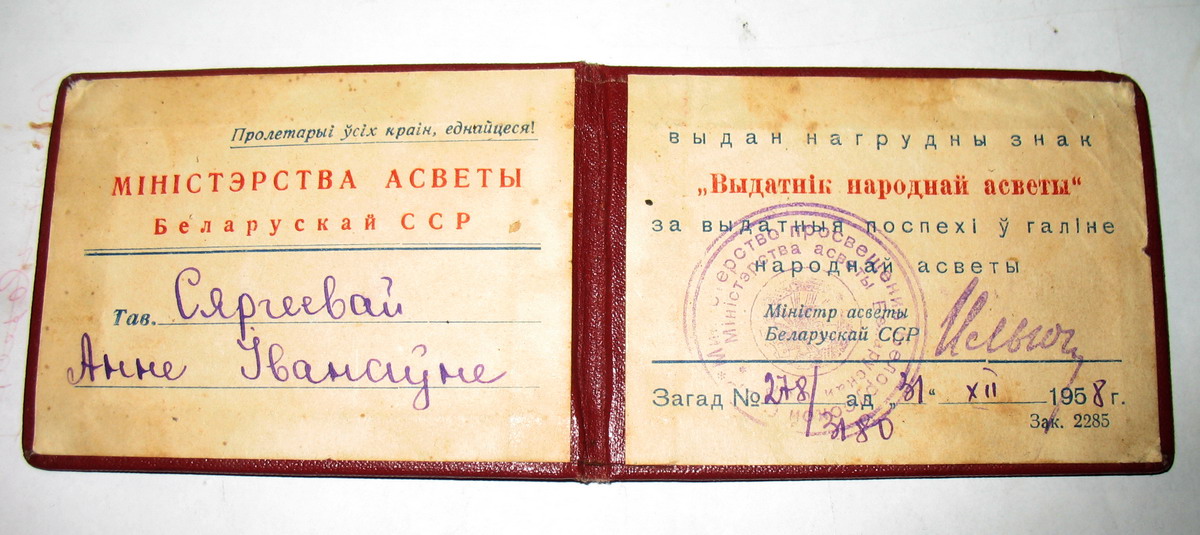 Пролетарыі ўсіх краін, еднайцеся!
МІНІСТЭРСТВА АСВЕТЫ
Беларускай ССР
Тав. Сяргеевай
Анне Іванаўне
выдан нагрудны знак
„Выдатнік народнай асветы“
за выдатныя поспехі ў галіне
народнай асветы
Міністр асветы
Беларускай ССР
Загад № 278/3180 ад „31“ XII 1958 г.
Зак. 2285
Министерство просвещения Белорусской ССР
Міністэрства асветы Беларускай ССР